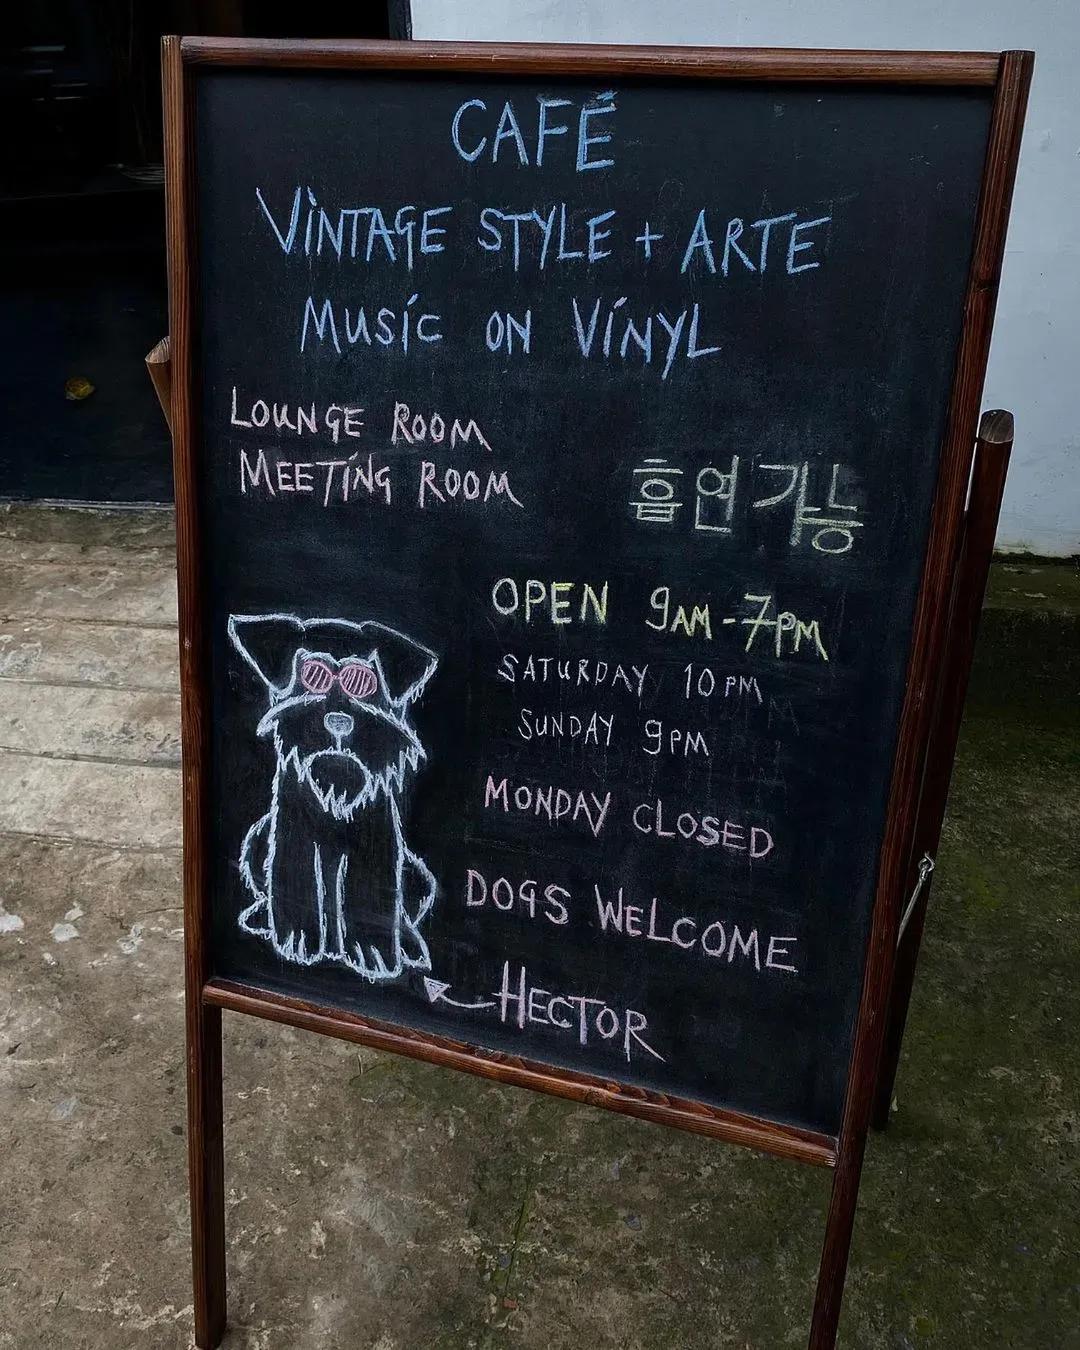 CAFÉ
VINTAGE STYLE + ARTE
MUSIC ON VINYL
LOUNGE ROOM
MEETING ROOM
흡연 가능
OPEN 9AM-7PM
SATURDAY 10PM
SUNDAY 9PM
MONDAY CLOSED
DOGS WELCOME
HECTOR